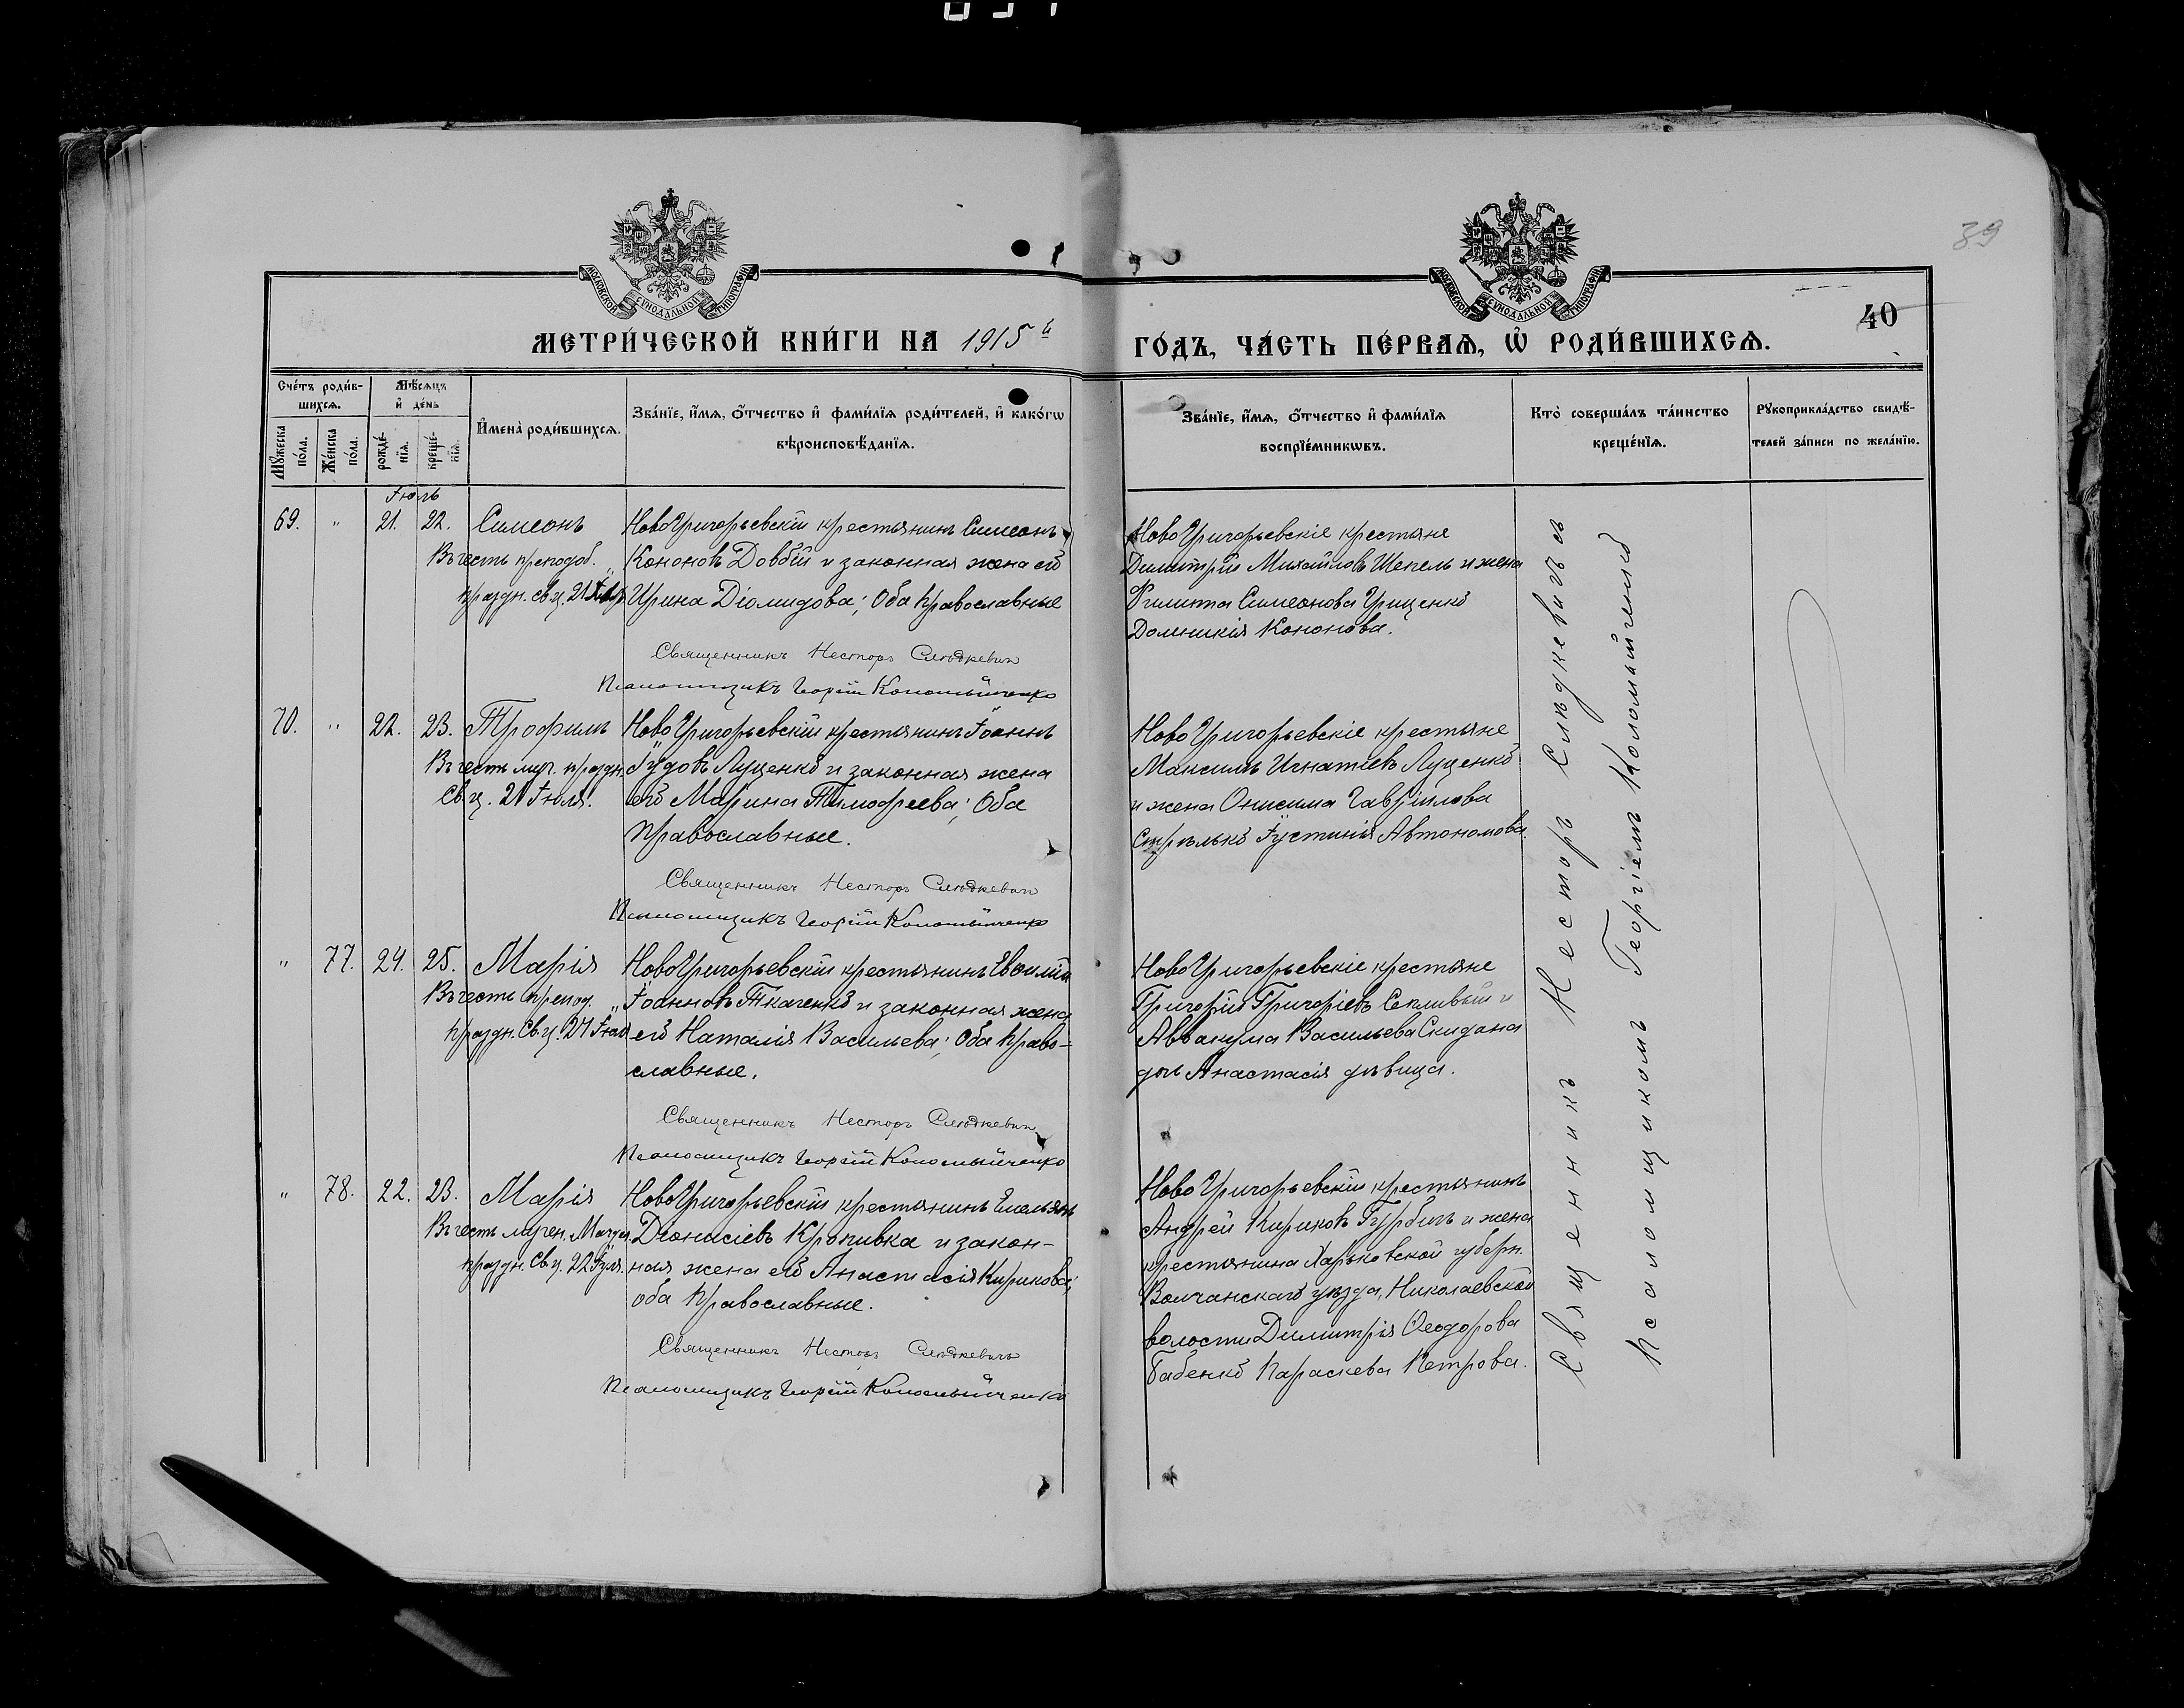 39
МОСКОВСКОЙ СУНОДАЛЬНОЙ ТИПОГРАФІИ
МОСКОВСКОЙ СУНОДАЛЬНОЙ ТИПОГРАФІИ
40
МЕТРИ́ЧЕСКОЙ КНИ́ГИ НА 1915й
ГО́ДЪ, ЧА́СТЬ ПЕ́РВАѦ, Ѡ҆ РОДИ́ВШИХСѦ.
Сче́тъ роди́в-
шихсѧ.
Мѣ́сѧцъ
и҆ де́нь
Мꙋ́жеска по́ла.
Же́нска по́ла.
рожде́-
нїѧ.
креще́-
нїѧ.
И҆мена̀ роди́вшихсѧ.
Зва́нїе, и҆́мѧ, ѻ҆́тчество и҆ фами́лїѧ роди́телей, и҆ како́гѡ
вѣроисповѣ́данїѧ.
Зва́нїе, и҆́мѧ, ѻ҆́тчество и҆ фами́лїѧ
воспрїе́мникѡвъ.
Кто̀ соверша́лъ та́инство
креще́нїѧ.
Рꙋкоприкла́дство свидѣ́-
телей за́писи по жела́нїю.
Іюль
69. " 21. 22. Симеонъ
Въ честь преподоб.
праздн. св. ц. 21
НовоГригорьевскій крестьянинъ Симеонъ
Кононовъ Довбій и законная жена его
Ирина Діомидова; Оба православные
Священникъ Несторъ Слюдкевичъ
Псаломщикъ Георгій Коломыйченко
НовоГригорьевскіе крестьяне
Димитрій Михайловъ Шепель и жена
Филиппа Симеонова Грищенко
Домникія Кононова.
70. " 22. 23. Трофимъ
Въ честь муч. праздн.
Св. ц. 21 Іюля.
НовоГригорьевскій крестьянинъ Іоаннъ
Іудовъ Луценко и законная жена
его Марина Тимофеева; Оба
православные.
Священникъ Несторъ Слюдкевичъ
Псаломщикъ Георгій Коломыйченко
НовоГригорьевскіе крестьяне
Максимъ Игнатіевъ Луценко
и жена Онисима Гавріилова
Стрѣлько Іустинія Автономова.
" 77. 24. 25. Марія
Въ честь препод.
праздн. Св. ц. 24 Іюля
НовоГригорьевскій крестьянинъ Евѳимій
Іоанновъ Ткаченко и законная жена
его Наталія Васильева; Оба право-
славные.
Священникъ Несторъ Слюдкевичъ
Псаломщикъ Георгій Коломыйченко
НовоГригорьевскіе крестьяне
Григорій Григоріевъ и
Аввакума Васильева Скидана
дочь Анастасія дѣвица.
" 78. 22. 23. Марія
Въ честь мѵрон. Магдал.
праздн. Св. ц. 22 Іюля.
НовоГригорьевскій крестьянинъ Емельянъ
Діонисіевъ Кропивка и закон-
ная жена его Анастасія Кирикова;
оба православные.
Священникъ Несторъ Слюдкевичъ
Псаломщикъ Георгій Коломыйченко
НовоГригорьевскій крестьянинъ
Андрей Кириковъ Гурбичъ и жена
крестьянина Харьковской губерн.
Волчанскаго уѣзда, Николаевской
волости Димитрія Ѳеодорова
Бабенко Параскева Петрова.
Священникъ Несторъ Слюдкевичъ съ
Псаломщикомъ Георгіемъ Коломыйченко